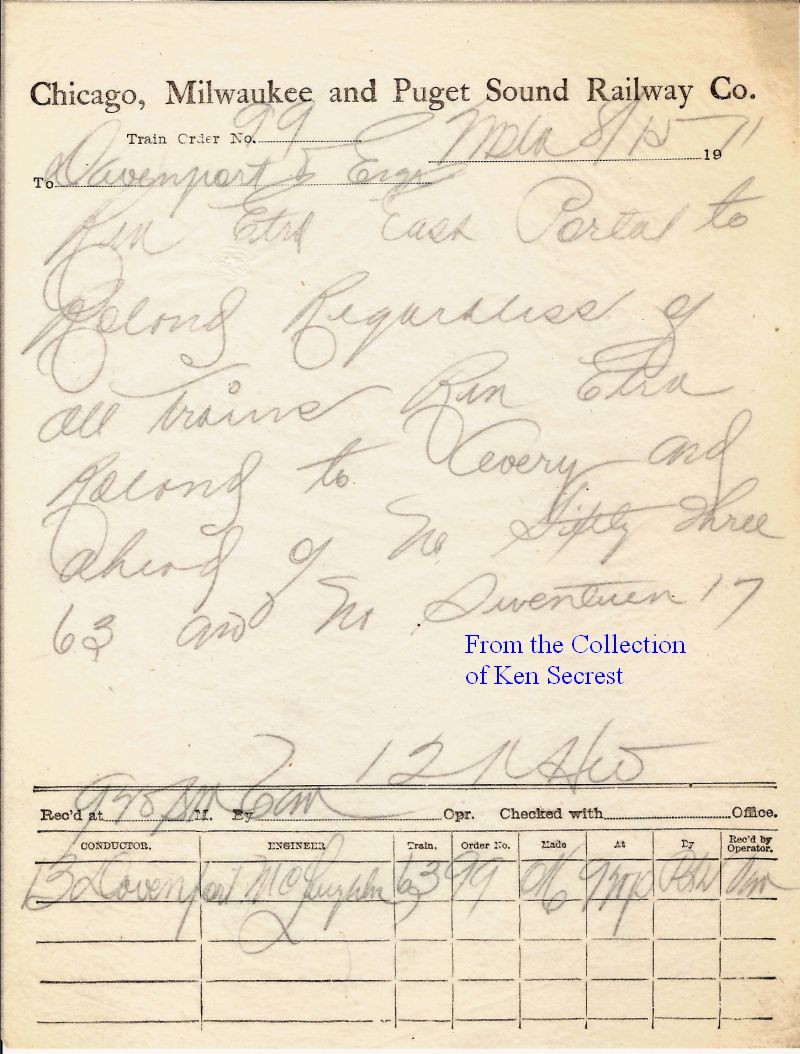 Chicago, Milwaukee and Puget Sound Railway Co.
Train Order No. 99
8/15 1911
To Davenport & Engr
Run Extra East Portal to
Roland Regardless of
all trains Run Extra
Roland to Avery and
ahead of No Sixty Three
63 and No Seventeen 17
From the Collection
of Ken Secrest
12
Rec'd at 935 P M. By Opr. Checked with Office.
CONDUCTOR. ENGINEER Train. Order No. Made At By Rec'd by Operator.
Davenport 63 99 OK